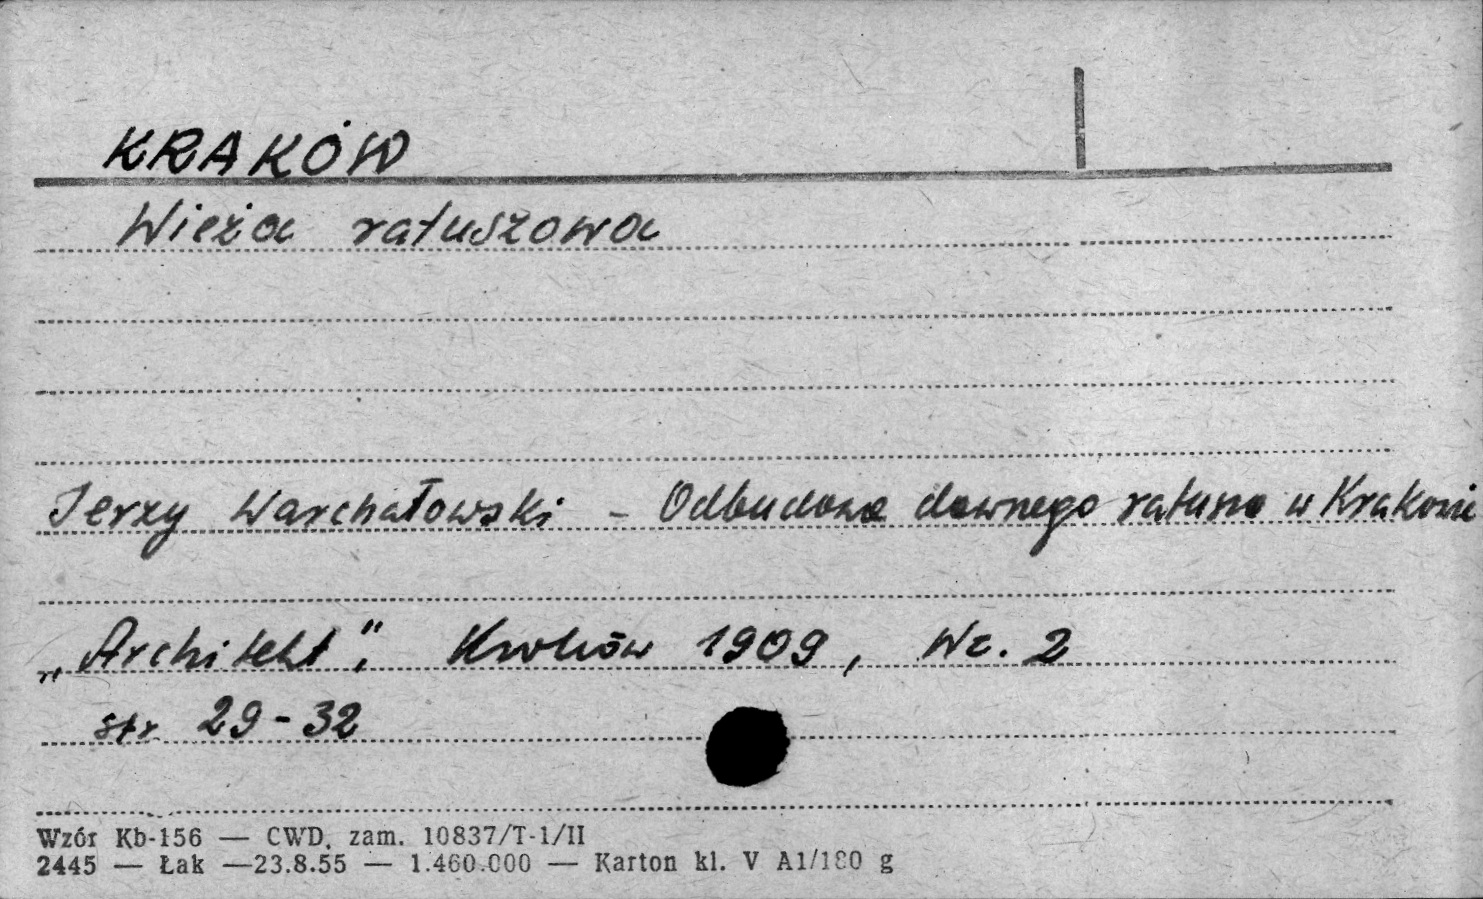 KRAKÓW
Wieża ratuszowa
Jerzy Warchałowski – Odbudowa dawnego ratusza w Krakowie
„Architekt", Kraków 1909, Nr. 2
str 29-32
Wzór Kb-156 — CWD. zam. 10837/T-1/II
2445 — Łak —23.8.55 — 1.460.000 — Karton kl. V A1/180 g